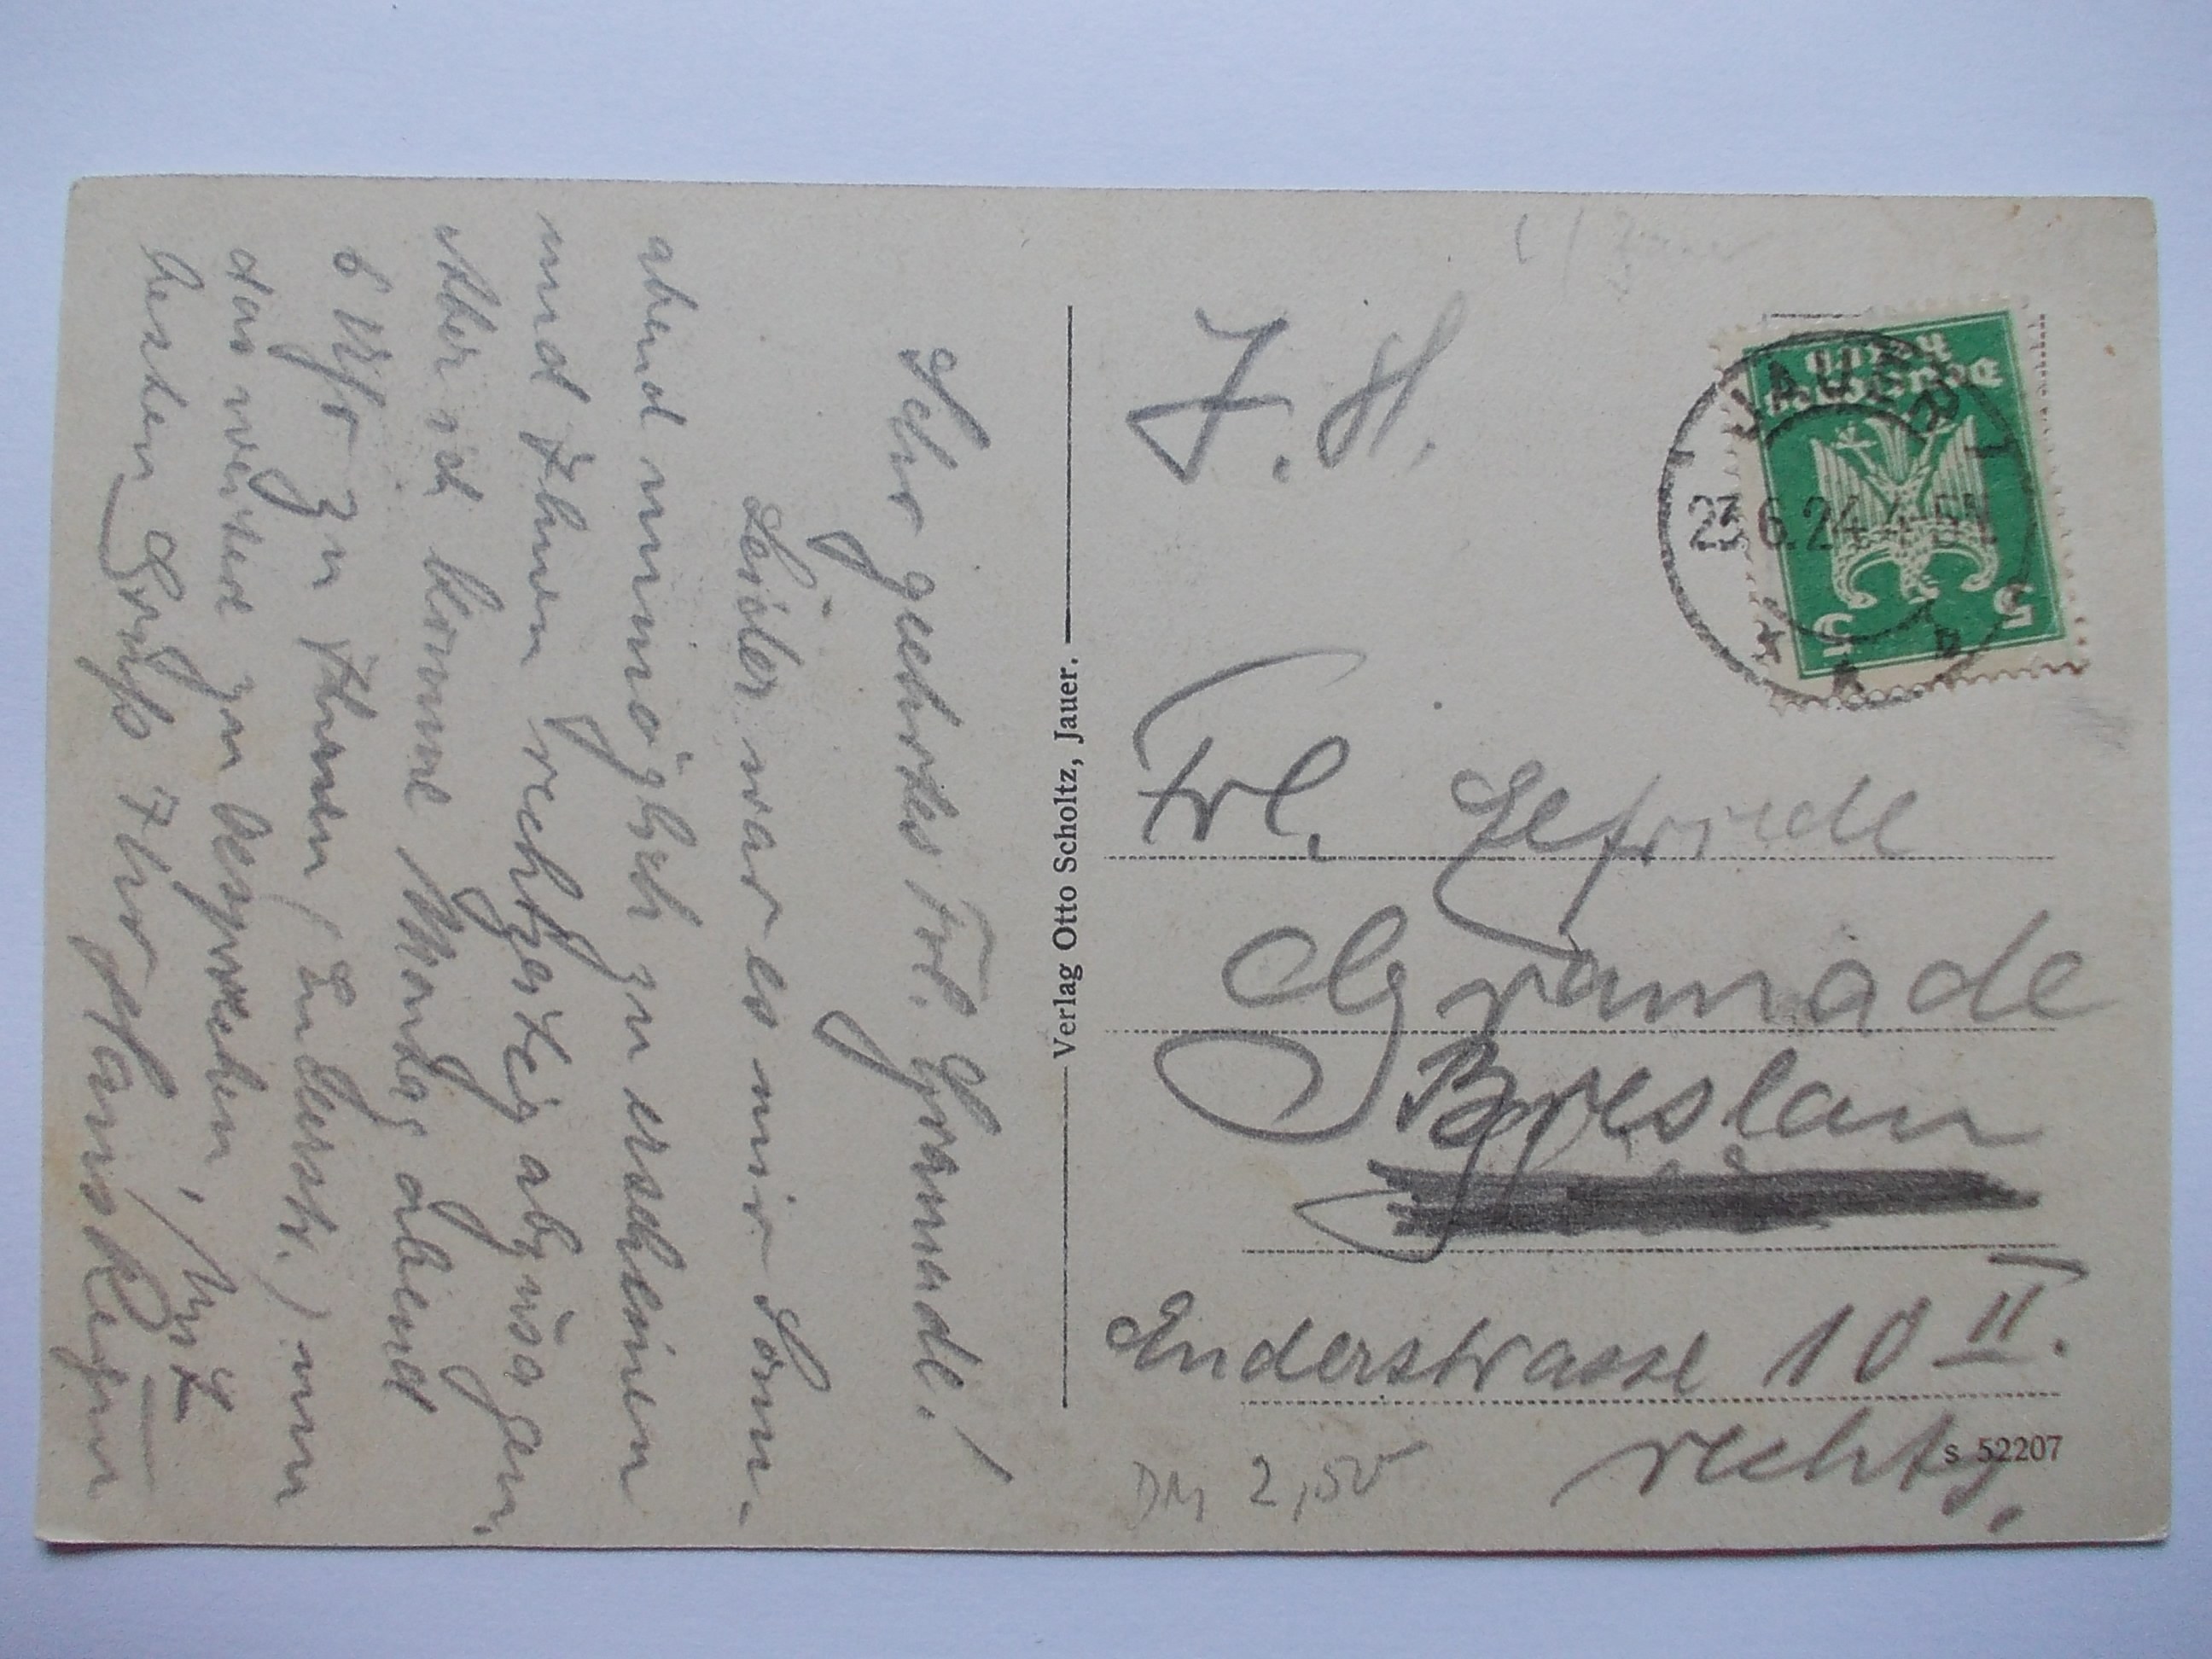 Sehr geehrtes Frl. Gramade!
Leider war es mir Sonn-
abend unmöglich zu erscheinen
und Ihnen rechtzeitig abzusagen,
Aber ich komme Montag abend
6 Uhr zu Ihnen (Enderstr.) um
das weitere zu besprechen,
besten Gruß Ihr Hans
Verlag Otto Scholtz, Jauer.
Deutsches
Reich
5 5
JAUER
23.6.24.4-5N
Frl.
Gramade
Breslau
Enderstrasse 10 II.
rechts,
s 52207
DM 2,50